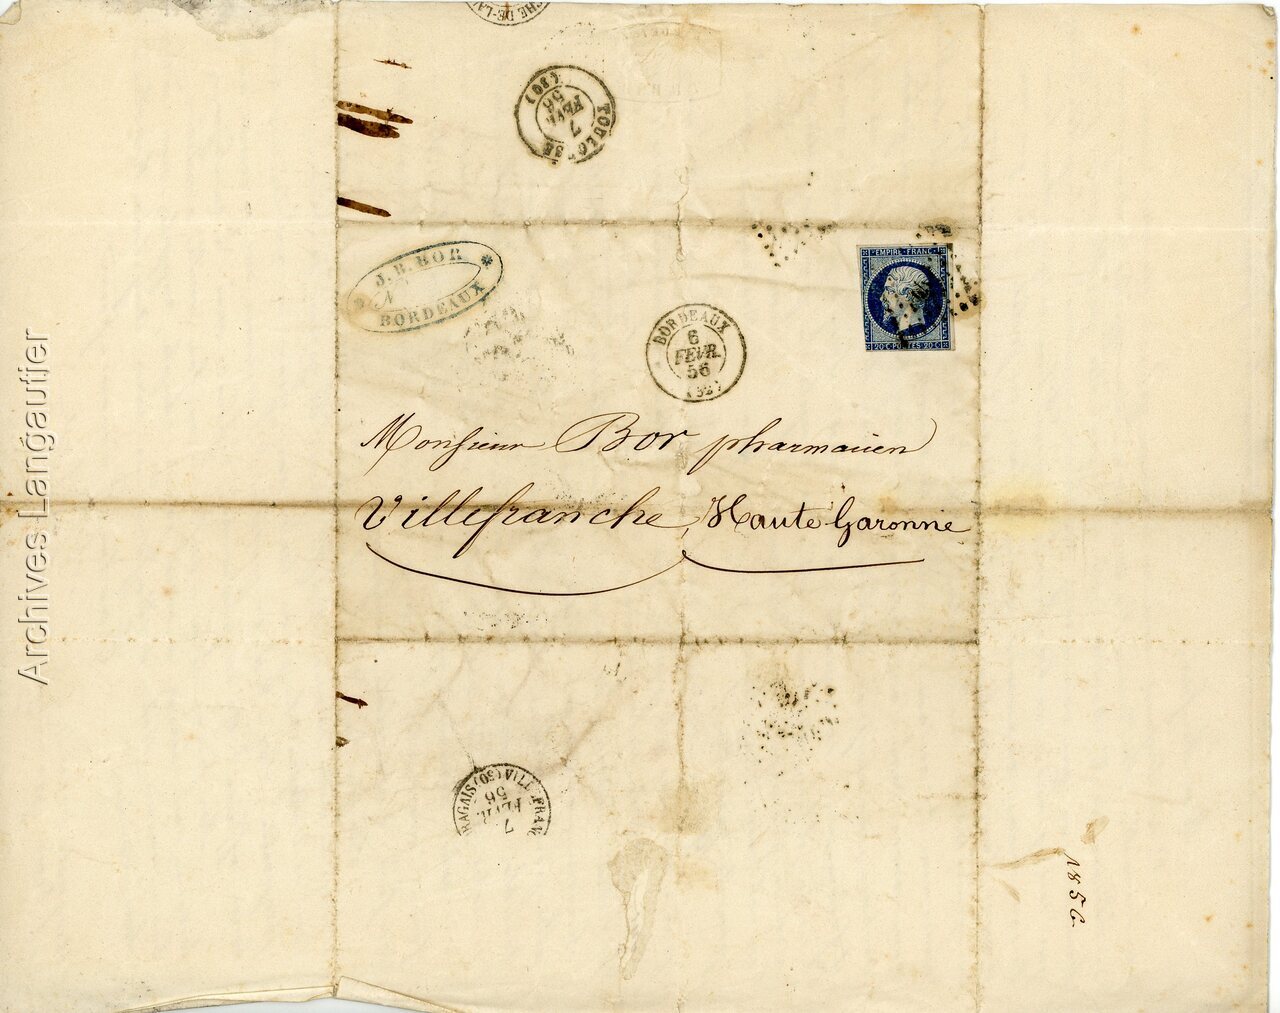 CHE DE-LA
TOULOUSE
7
FEVR.
56
(30)
J. B. BOR
BORDEAUX
BORDEAUX
6
FEVR.
56
EMPIRE FRANC.
20 C. POSTES 20 C.
Monsieur Bor pharmacien
Villefranche, Haute Garonne
7
FEVR.
56
RAGAIS (30) VILLEFRAN
1856
Archives Langautier